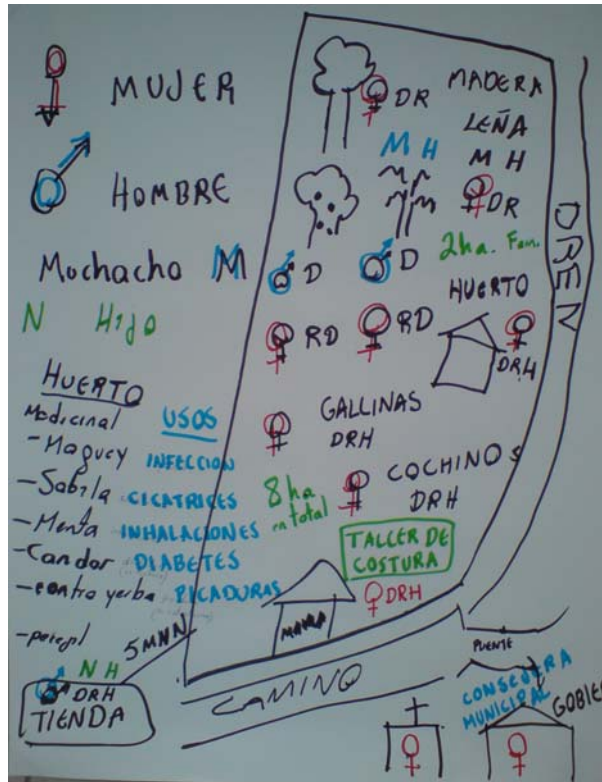 MUJER
HOMBRE
Muchacho M
N Hijo
HUERTO
Medicinal USOS
- Maguey INFECCION
- Sabila CICATRICES
- Menta INHALACIONES
- Candor DIABETES
- contra yerba PICADURAS
- perejil
5 MNN
N H
DRH
TIENDA
DR MADERA
LEÑA
M H M H
DR
D D 2ha. Fam.
HUERTO
RD RD
DRH
GALLINAS
DRH
COCHINOS
DRH
8 ha
en total
TALLER DE
COSTURA
DRH
MAMA
DREN
CAMINO
PUENTE
MUNICIPAL
GOBIE